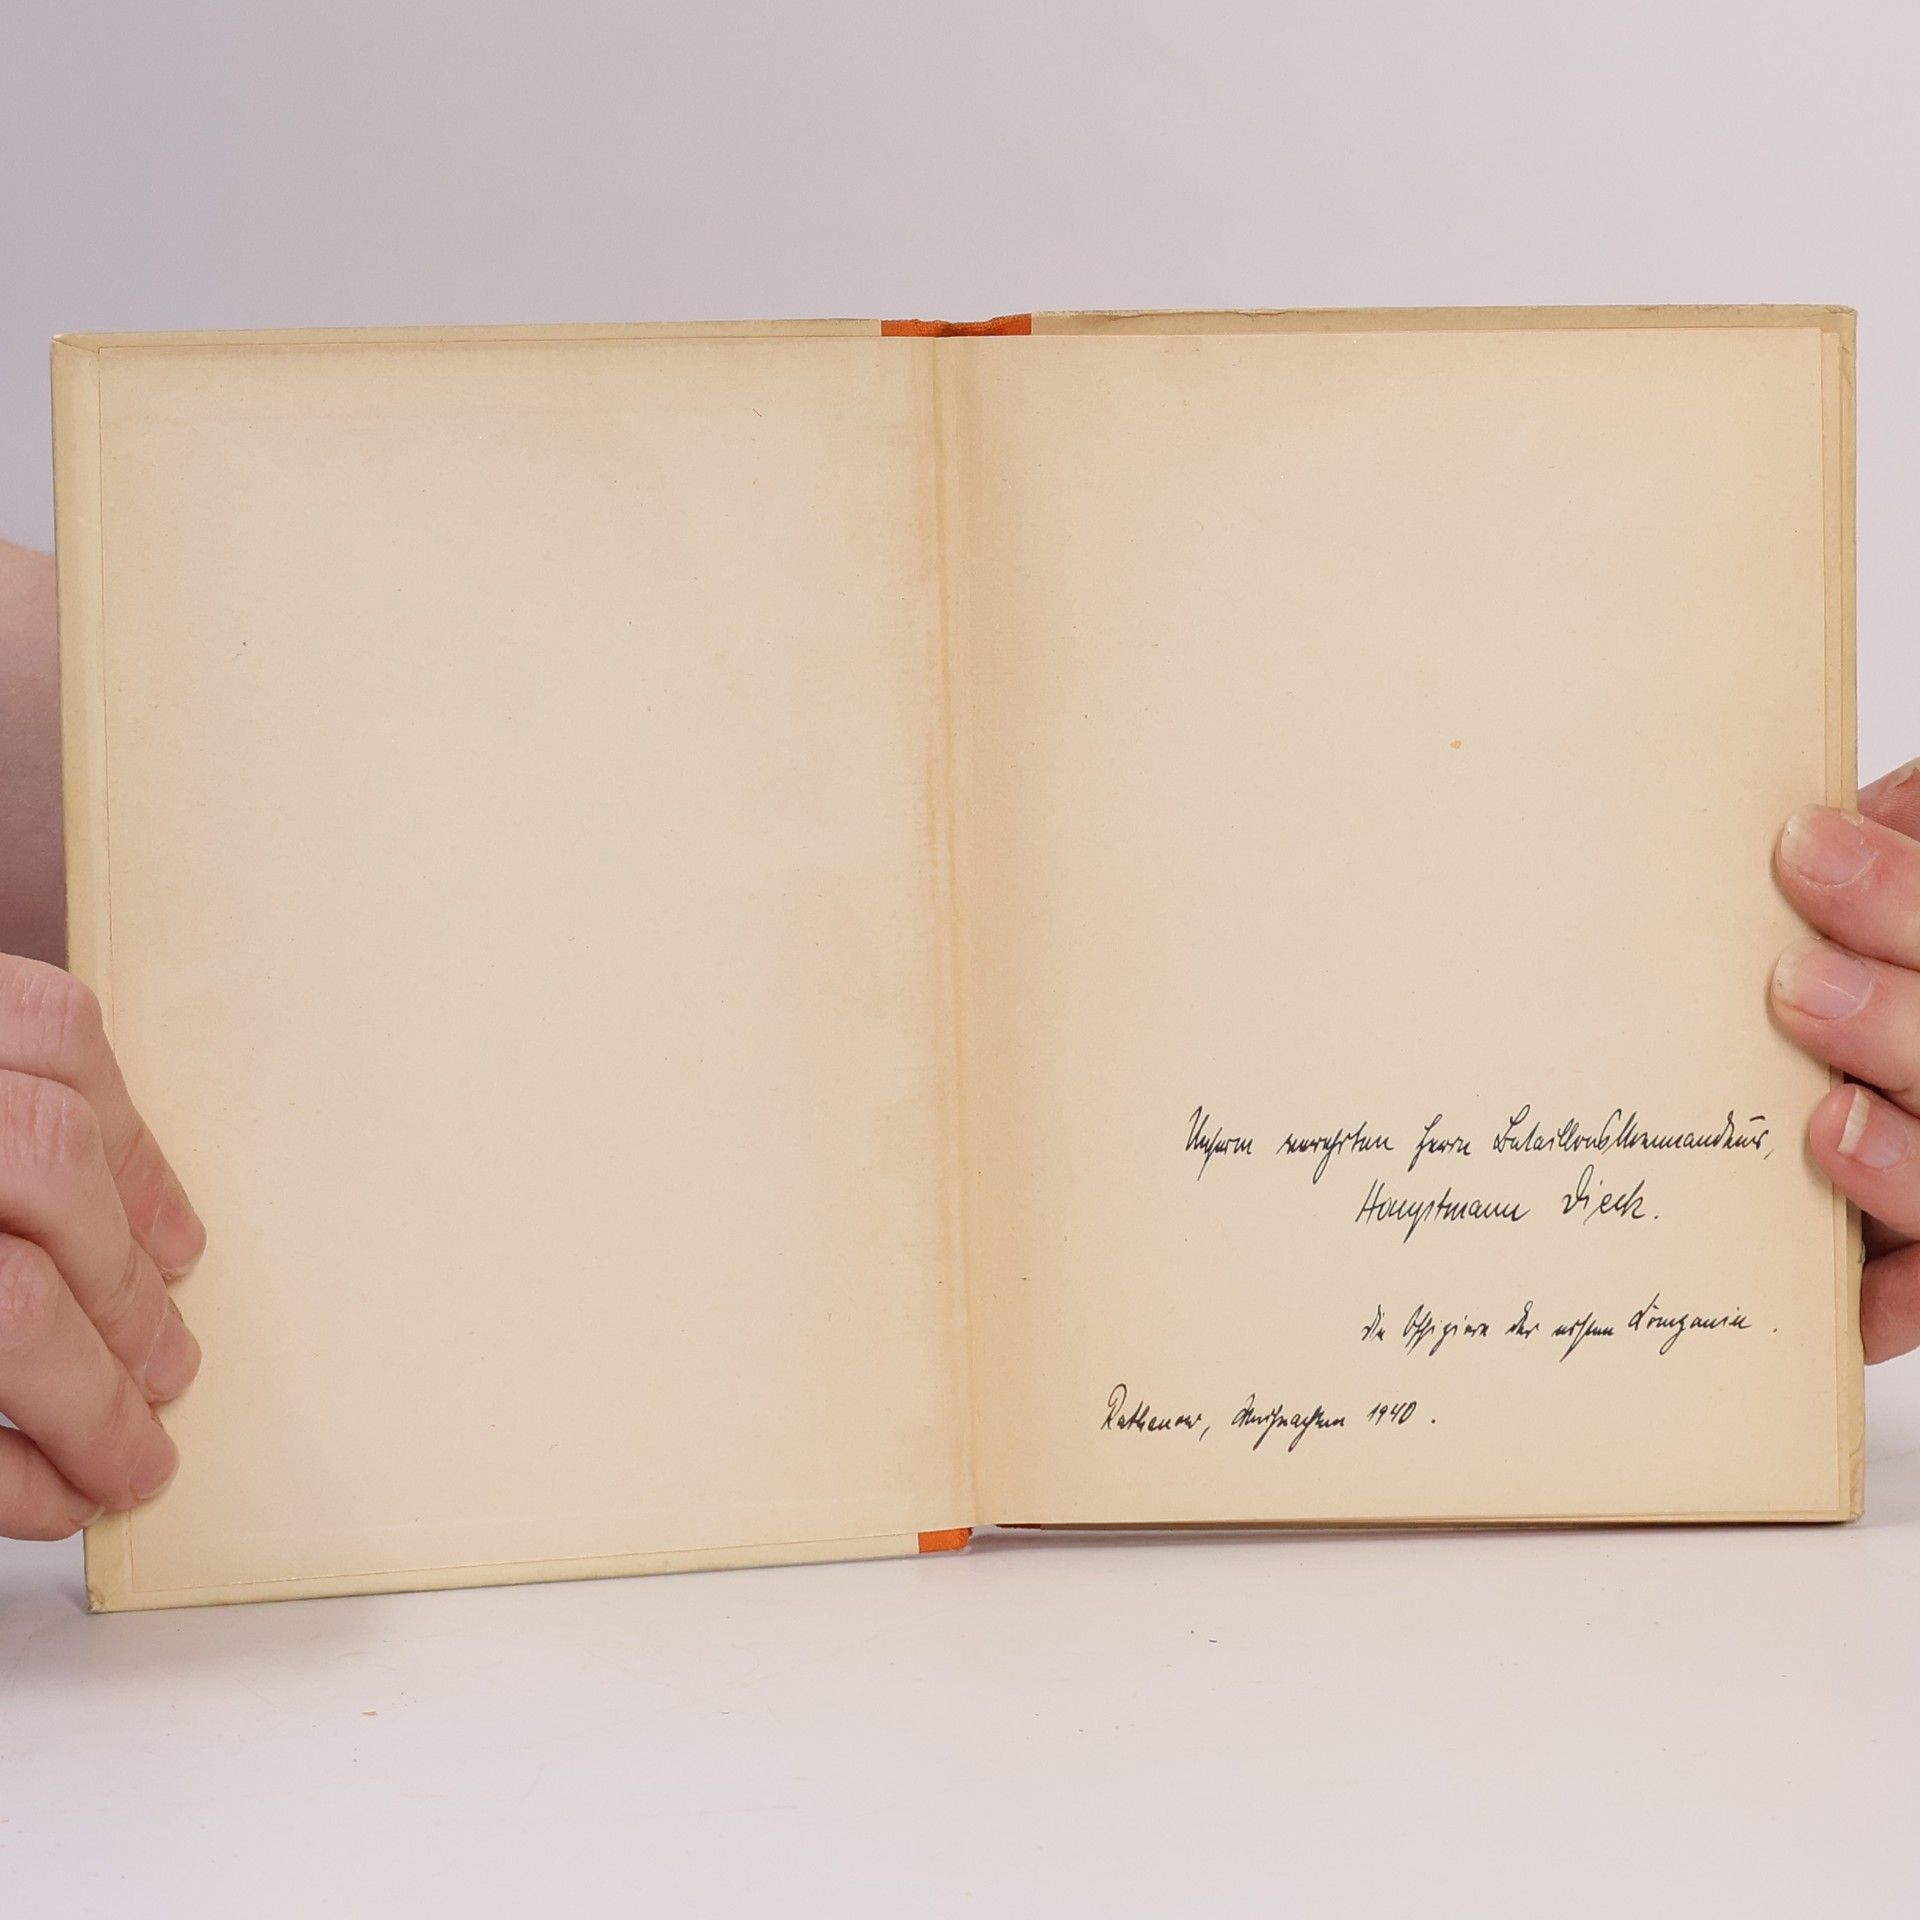 Unserm verehrten Herrn Bataillonskommandeur,
Hauptmann Dieck.
Die Offiziere der ersten Kompanie.
Rathenow, Weihnachten 1940.